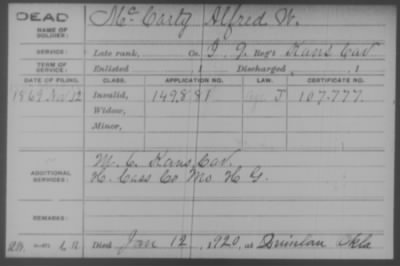 DEAD
NAME OF SOLDIER: McCarty Alfred W.
SERVICE: Late rank, Co. I, 9 Reg't Kans Cav
TERM OF SERVICE: Enlisted , 1 Discharged , 1
DATE OF FILING. CLASS. APPLICATION NO. LAW. CERTIFICATE NO.
1869 Nov 12 Invalid, 149881 J 107.777.
Widow,
Minor,
ADDITIONAL SERVICES: M. C. Kans. Cav.
H. Cass Co Mo. H G.
REMARKS:
Died Jan 12, 1920, at Quinlan Okla